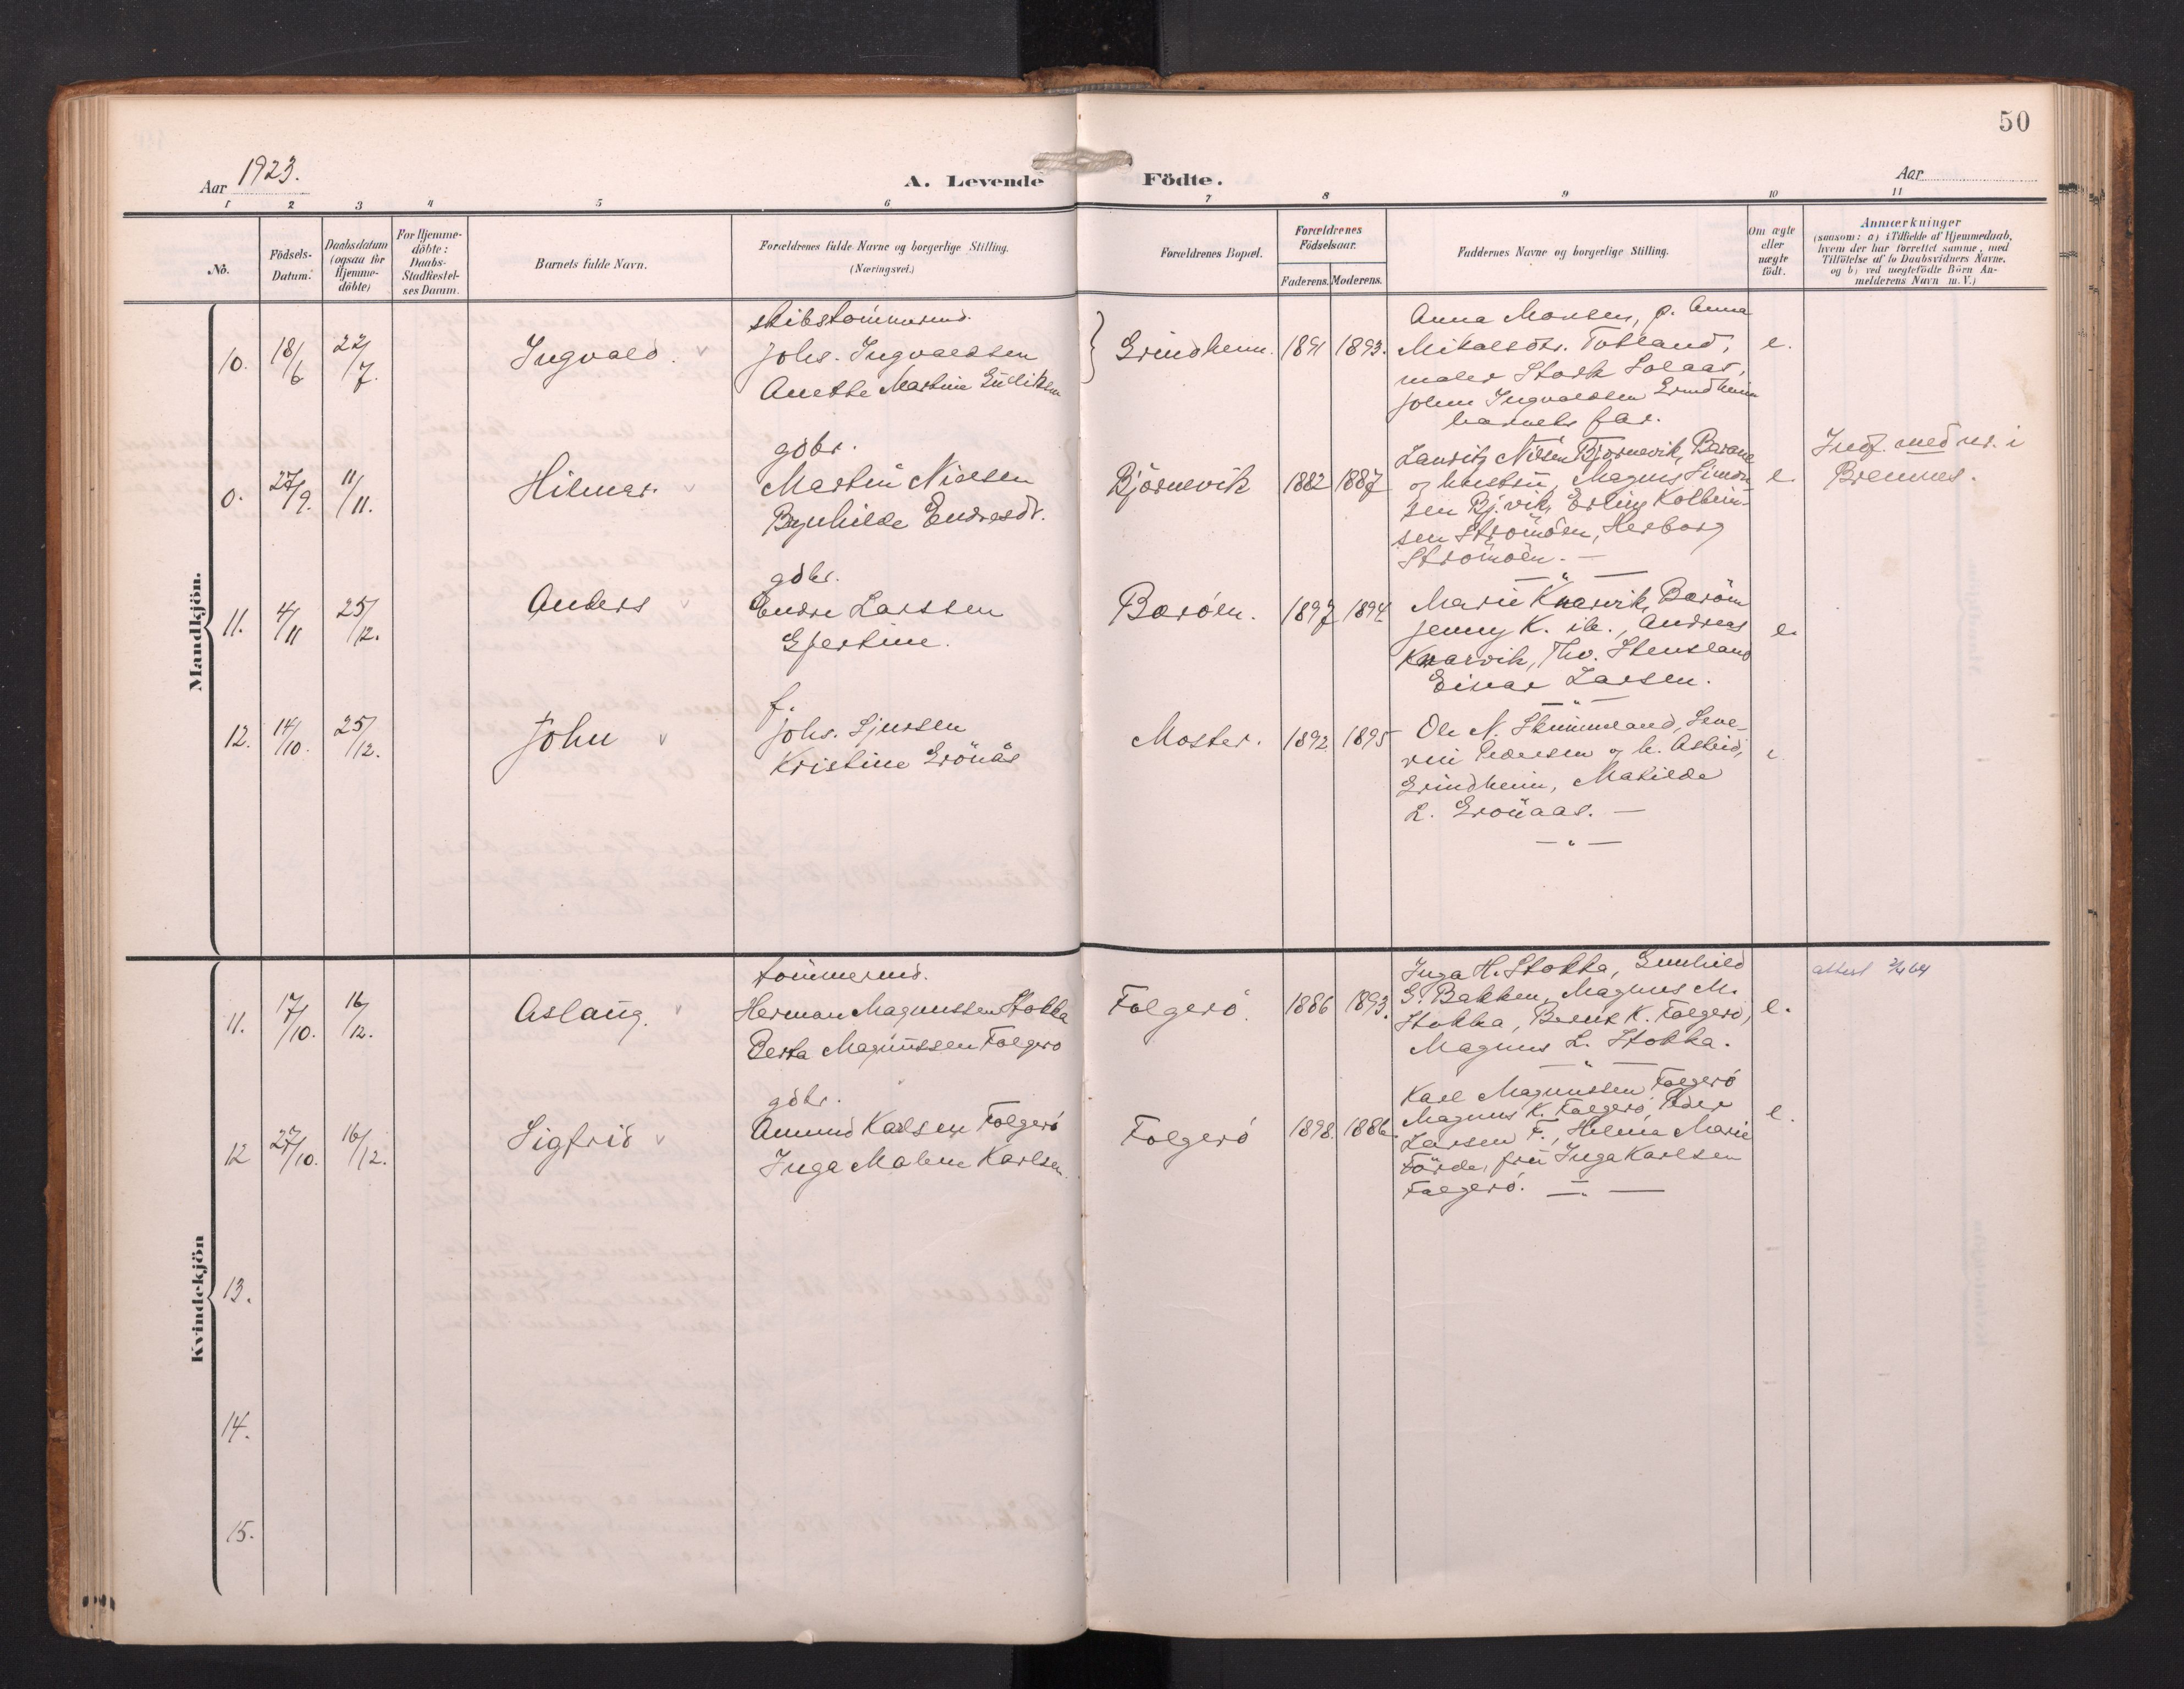 50
Aar 1923.
A. Levende Födte.
Aar
1 2 3 4 5 6 7 8 9 10 11
No.
Födsels-
Datum.
Daabsdatum
(ogsaa for
Hjemme-
döbte)
For Hjemme-
döbte:
Daabs-
Stadfæstel-
ses Datum.
Barnets fulde Navn.
Forældrenes fulde Navne og borgerlige Stilling.
(Næringsvei.)
Forældrenes Bopæl.
Forældrenes
Födselsaar.
Faderens. Moderens.
Faddernes Navne og borgerlige Stilling.
Om ægte
eller
uægte
födt.
Anmærkninger
(saasom: a) i Tilfælde af Hjemmedaab,
hvem der har forrettet samme, med
Tilföielse af to Daabsvidners Navne,
og b) ved uægtefödte Börn An-
melderens Navn m. V.)
Mandkjön.
10. 18/6 22/7. Ingvald.
skibstömmermd.
Johs. Ingvaldsen
Anette Martine
Grindheim. 1891 1893.
Anna Monsen, p. Anna
Mikalsdtr. Totland,
maler Stark Solaas,
John Ingvaldsen Grindheim
barnets far.
e.
0. 27/9. 11/11. Hilmar.
gdbr.
Martin Nielsen
Brynhilde Endresdr.
Björnevik 1882 1887
Lauritz Nilsen Björnevik, Barane
og hustru, Magnus Simon-
sen Bj.vik, Erling Kolbein-
sen Strömöen, Herborg
Strömöen. —
— " —
e
Indf. med nr. i
Bremnes.
11. 4/11 25/12. Anders
gdbr.
Endre Larssen
Gjertine.
Boröen. 1897 1894
Marie Knarvik, Boröen
Jenny K. ib., Andreas
Knarvik, Thv. Stensland
Einar Larsen.
— " —
e.
12. 14/10. 25/12. John
f.
Johs. Sjurssen
Kristine Grönås
Moster. 1892 1895
Ole N. Stummeland, Seve-
rin Pedersen og h. Astrid,
Grindheim, Matilde
L. Grönaas. —
— " —
e
Kvindekjön
11. 17/10. 16/12. Aslaug.
tömmermd.
Herman Magnussen Stokka
Berta Magnussen Folgerö
Folgerö. 1886 1893.
Inga H. Stokka, Gunhild
G. Bakken, Magnus M.
Stokka, Bernt K. Folgerö,
Magnus L. Stokka.
— " —
e.
attest 2/4 64
12 27/10. 16/12. Sigfrid
gdbr.
Amund Karlsen Folgerö
Inga Malene Karlsen.
Folgerö 1898. 1886.
Karl Magnussen Folgerö
Magnus K. Folgerö, Peder
Larsen F., Helena Marie
Förde, fru Inga Karlsen
Folgerö. — " —
e.
13.
14.
15.